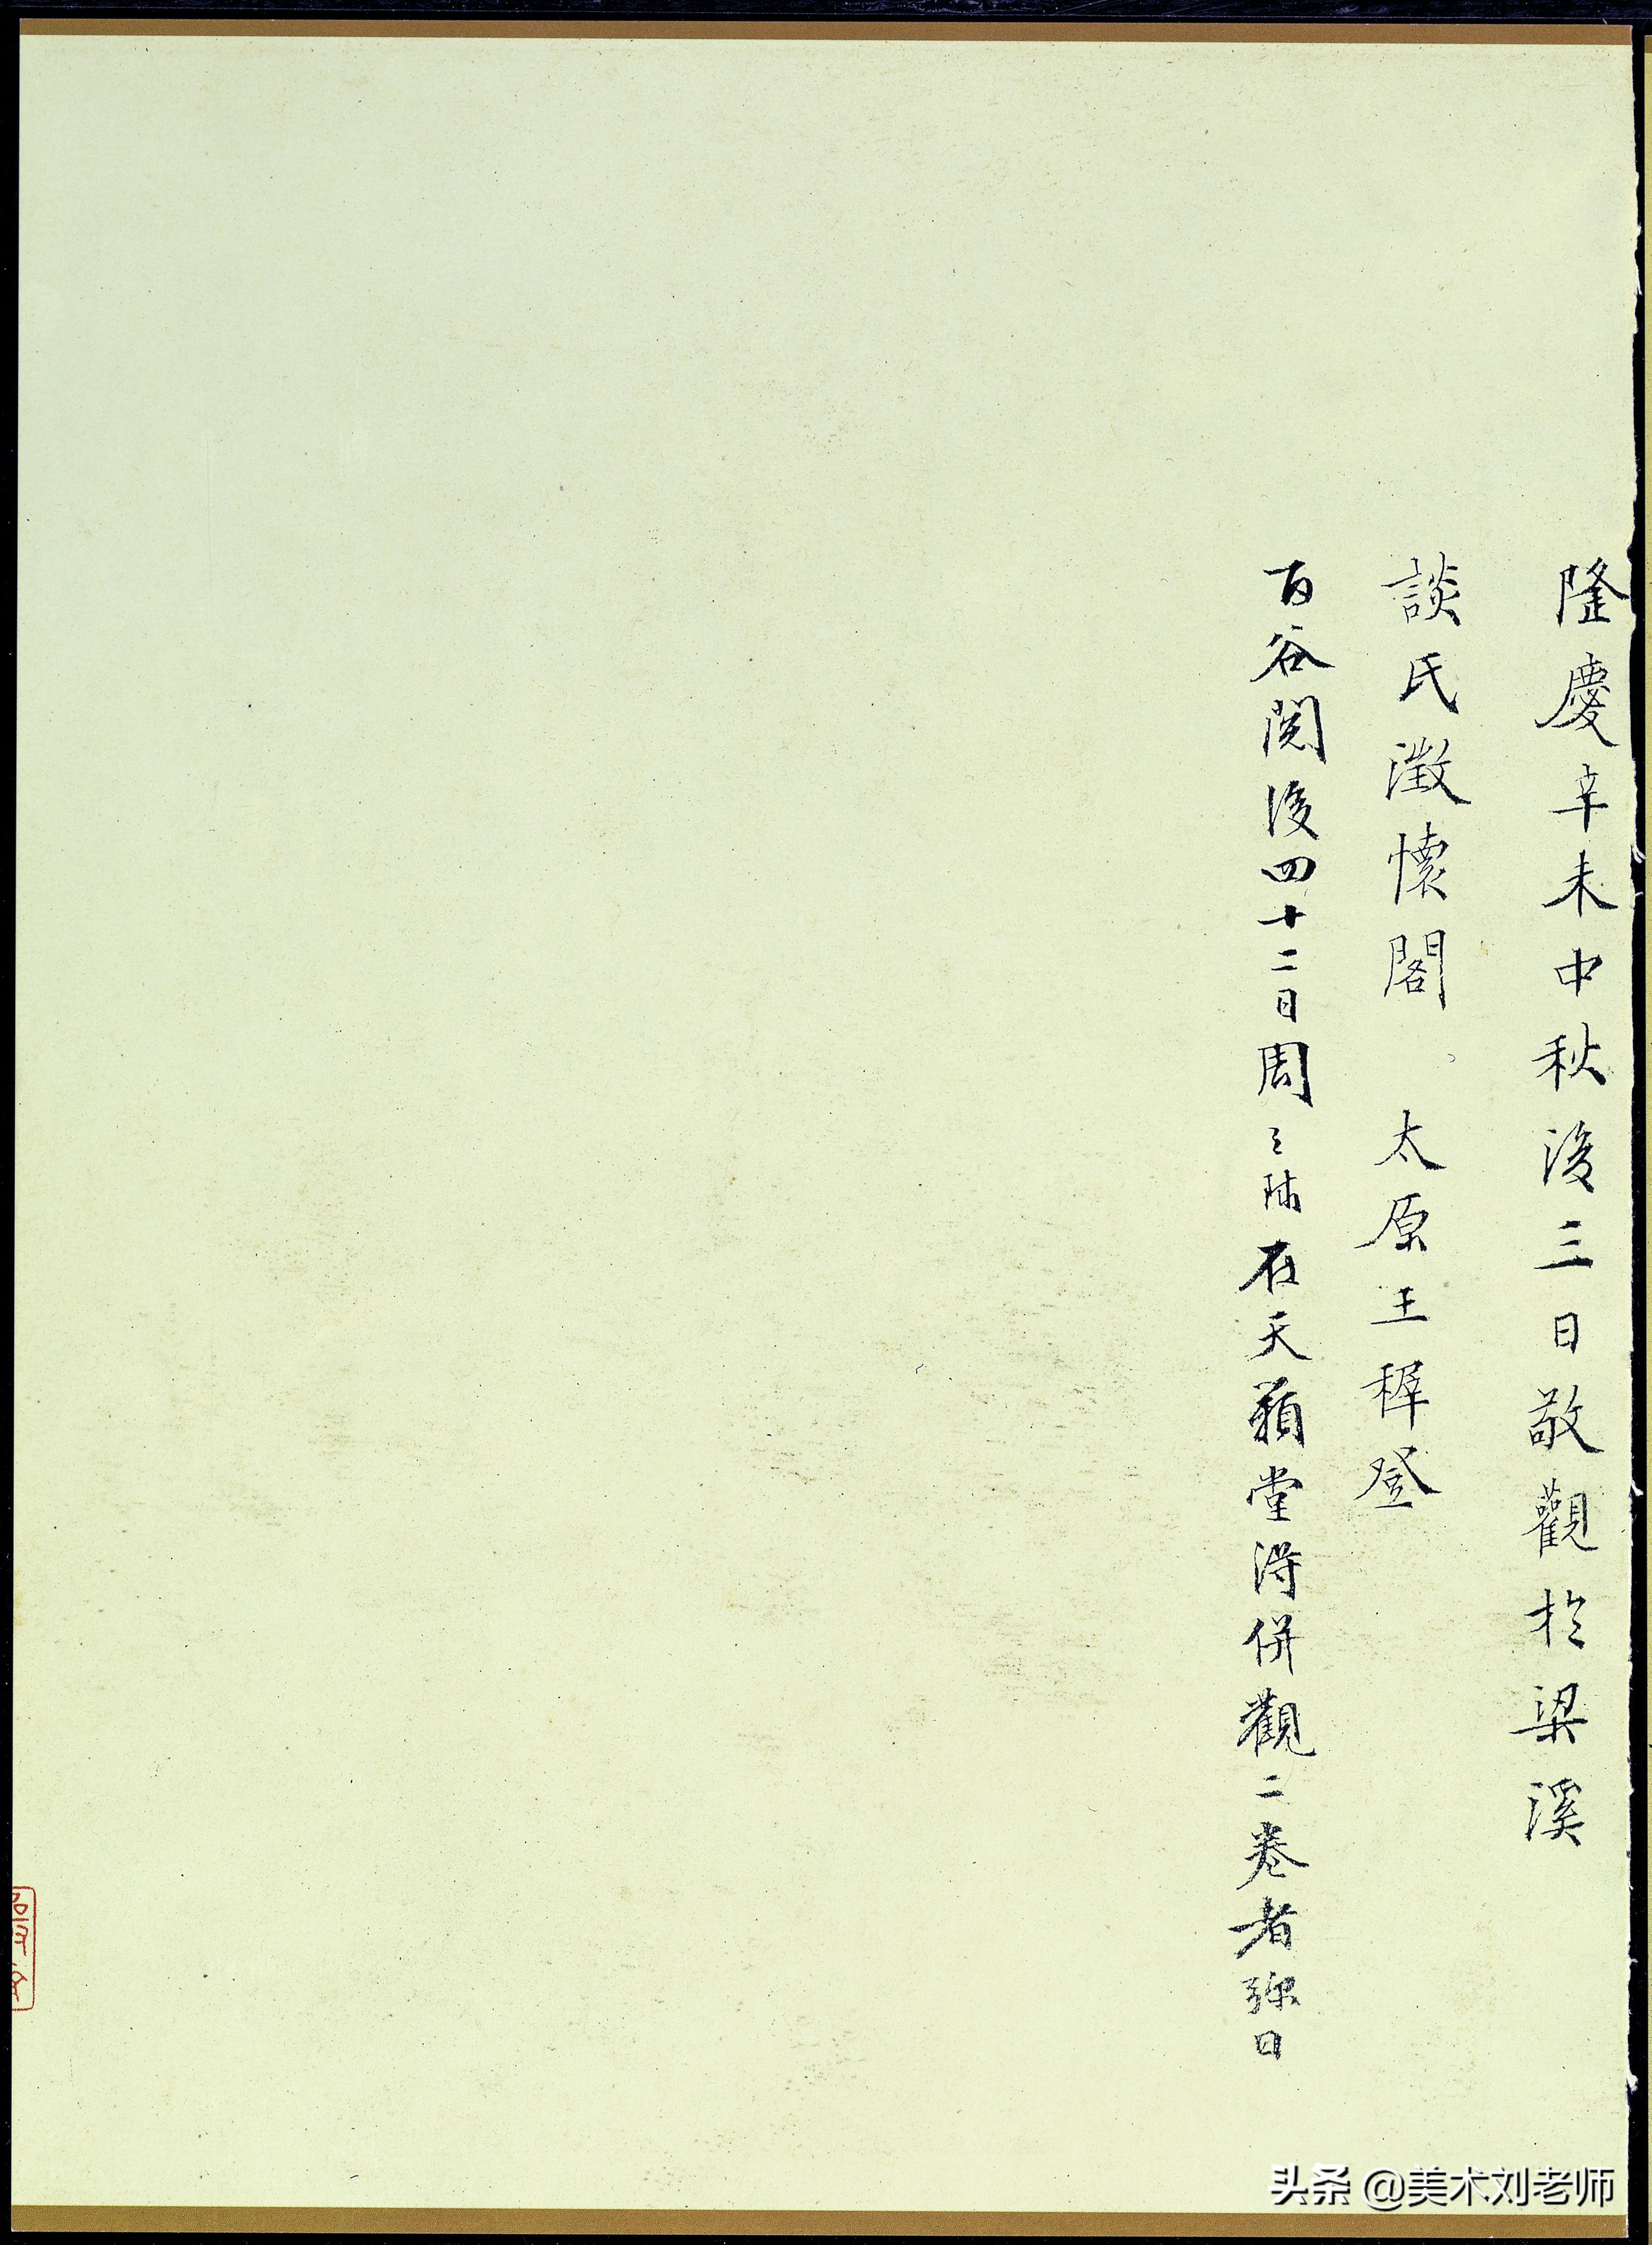 隆慶辛未中秋後三日敬觀於梁溪
談氏澂懷閣 太原王穉登
百谷閱後四十二日周 在天籟堂得併觀二卷者弥日
头条 @美术刘老师